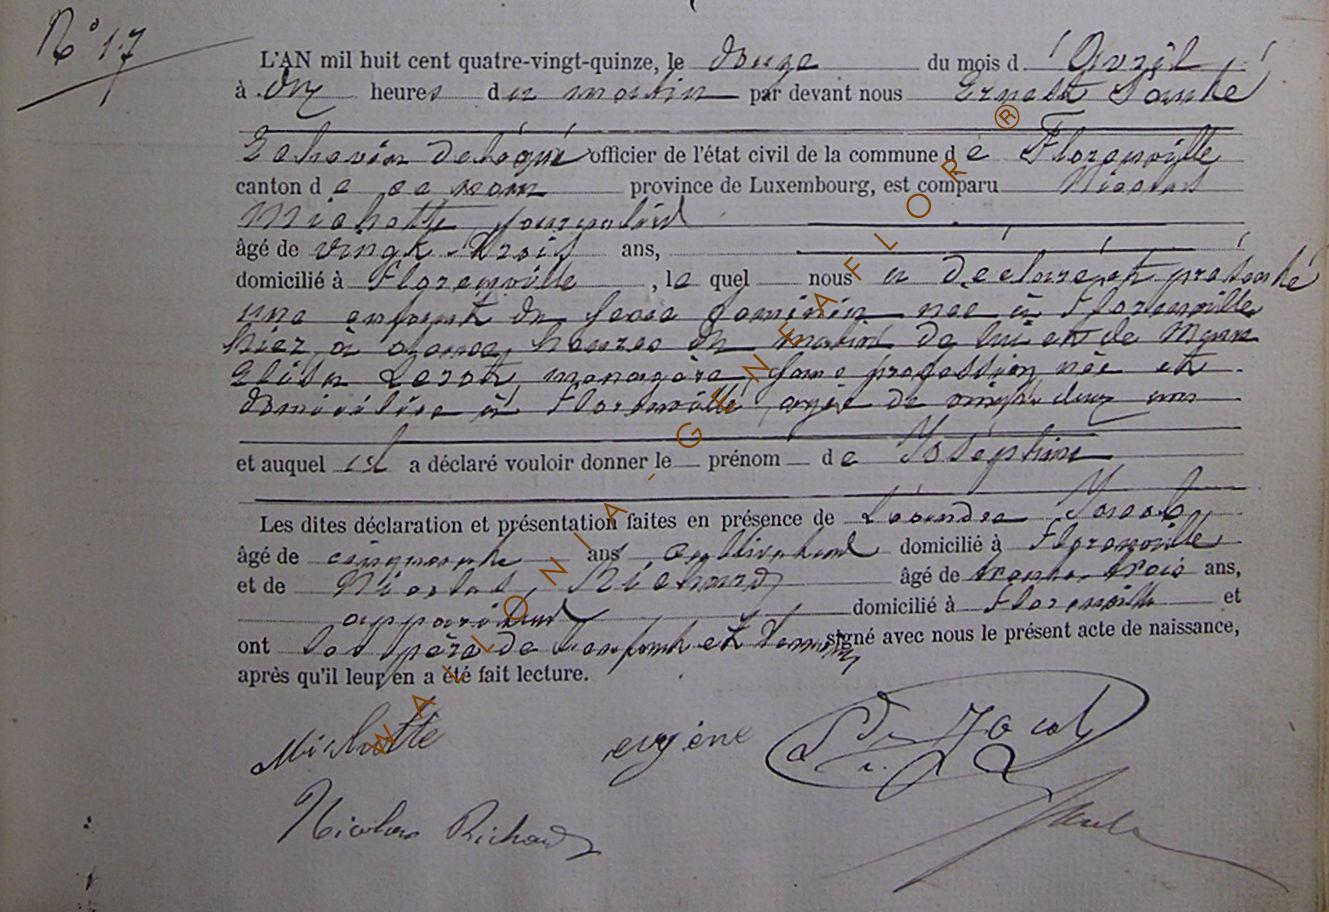 N° 17
L'AN mil huit cent quatre-vingt-quinze, le douze du mois d'Avril
à dix heures du matin par devant nous Ernest
Echevin délégué officier de l'état civil de la commune de Florenville
canton de ce nom province de Luxembourg, est comparu Nicolas
Michotte, journalier
âgé de vingt-trois ans,
domicilié à Florenville, le quel nous a déclaré et présenté
une enfant du sexe féminin née à Florenville
hier à onze heures du matin de lui et de
Elisa ménagère, profession née et
domiciliée à Florenville, agée de vingt-deux ans
et auquel il a déclaré vouloir donner le prénom de Joséphine
Les dites déclaration et présentation faites en présence de Léandre Jacob
âgé de cinquante ans cultivateur domicilié à Florenville
et de Nicolas Richard âgé de trente-trois ans,
appariteur domicilié à Florenville et
ont les père de l'enfant et témoins signé avec nous le présent acte de naissance,
après qu'il leur en a été fait lecture.
Michotte eugène Jacob
Nicolas Richard
WALLONIA - GENEAFLOR ®